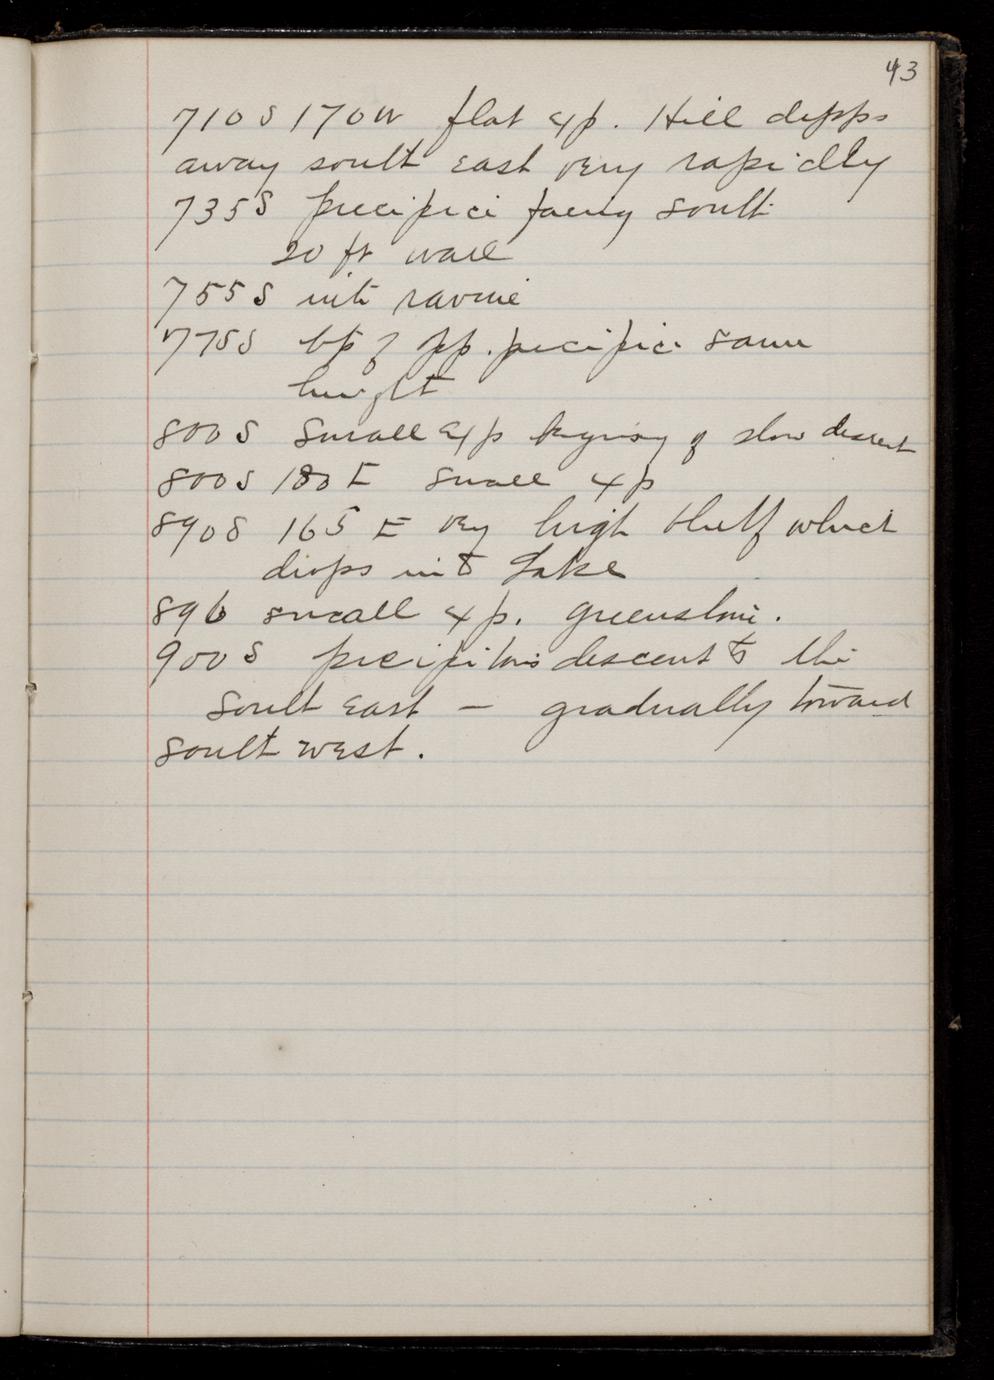 43
710 S 170 W flat exp. Hill dipps
away south east very rapidly
735 S precipice facing south
20 ft wall
755 S into ravine
775 S top of opp. precipice same
height
800 S Small exp begining of slow descent
800 S 180 E small exp
890 S 165 E very high bluff which
drops into Lake
896 small exp. greenstone.
900 S precipitous descent to the
South East — gradually toward
South west.